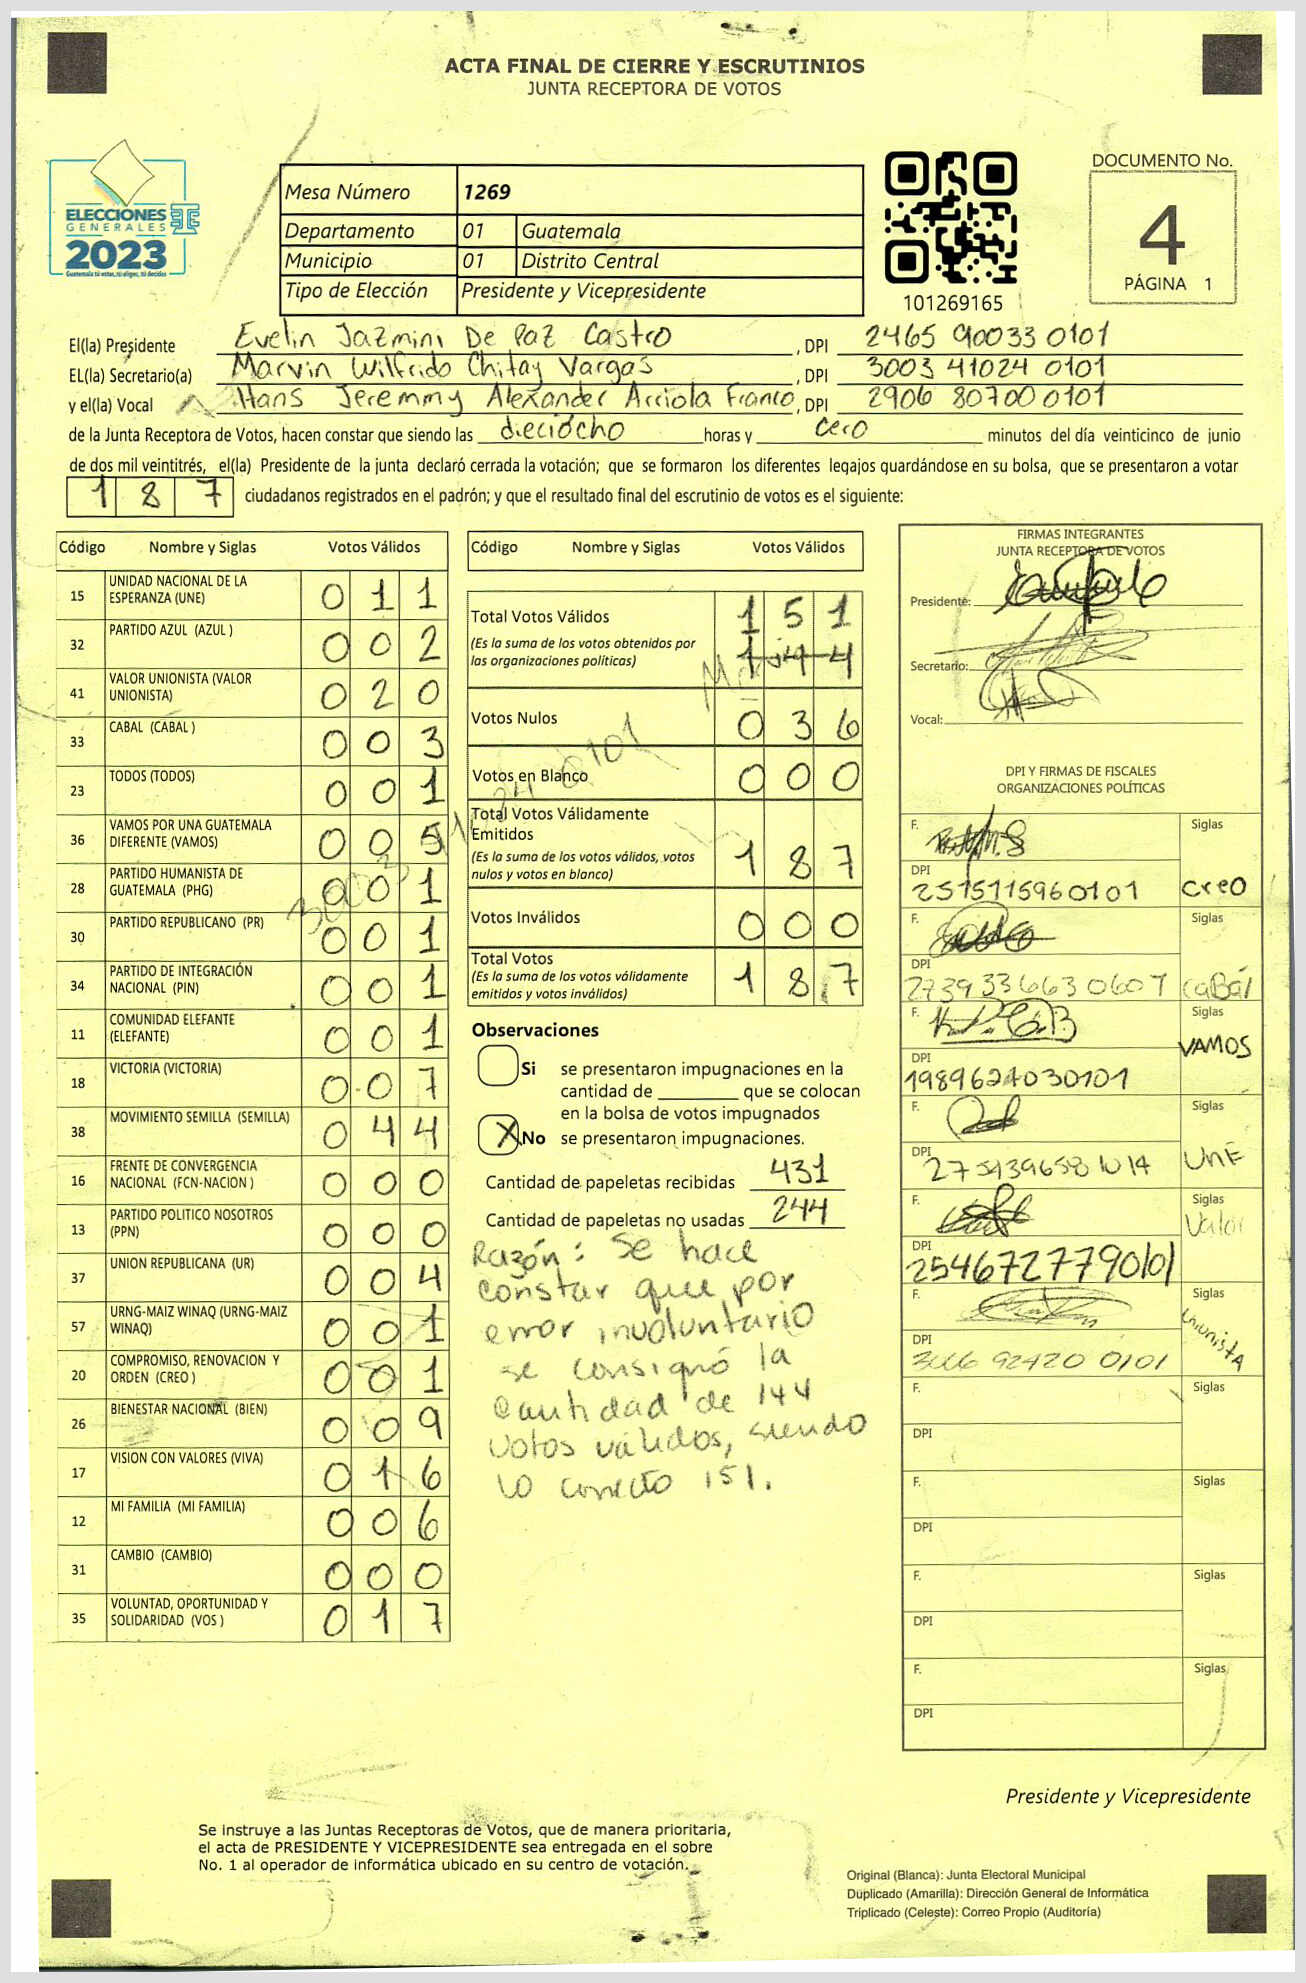 ACTA FINAL DE CIERRE Y ESCRUTINIOS
JUNTA RECEPTORA DE VOTOS
ELECCIONES
GENERALES
2023
Guatemala tú votas, tú eliges, tú decides
Mesa Número 1269
Departamento 01 Guatemala
Municipio 01 Distrito Central
Tipo de Elección Presidente y Vicepresidente
101269165
DOCUMENTO No.
4
PÁGINA 1
El(la) Presidente Evelin Jazmini De Paz Castro, DPI 2465 90033 0101
EL(la) Secretario(a) Marvin Wilfrido Chitay Vargas, DPI 3003 41024 0101
y el(la) Vocal Hans Jeremmy Alexander Arriola Franco, DPI 2906 80700 0101
de la Junta Receptora de Votos, hacen constar que siendo las dieciocho horas y cero minutos del día veinticinco de junio
de dos mil veintitrés, el(la) Presidente de la junta declaró cerrada la votación; que se formaron los diferentes legajos guardándose en su bolsa, que se presentaron a votar
187 ciudadanos registrados en el padrón; y que el resultado final del escrutinio de votos es el siguiente:
Código Nombre y Siglas Votos Válidos
15 UNIDAD NACIONAL DE LA ESPERANZA (UNE) 011
32 PARTIDO AZUL (AZUL ) 002
41 VALOR UNIONISTA (VALOR UNIONISTA) 020
33 CABAL (CABAL ) 003
23 TODOS (TODOS) 001
36 VAMOS POR UNA GUATEMALA DIFERENTE (VAMOS) 005
28 PARTIDO HUMANISTA DE GUATEMALA (PHG) 001
30 PARTIDO REPUBLICANO (PR) 001
34 PARTIDO DE INTEGRACIÓN NACIONAL (PIN) 001
11 COMUNIDAD ELEFANTE (ELEFANTE) 001
18 VICTORIA (VICTORIA) 007
38 MOVIMIENTO SEMILLA (SEMILLA) 044
16 FRENTE DE CONVERGENCIA NACIONAL (FCN-NACION ) 000
13 PARTIDO POLITICO NOSOTROS (PPN) 000
37 UNION REPUBLICANA (UR) 004
57 URNG-MAIZ WINAQ (URNG-MAIZ WINAQ) 001
20 COMPROMISO, RENOVACION Y ORDEN (CREO ) 001
26 BIENESTAR NACIONAL (BIEN) 009
17 VISION CON VALORES (VIVA) 016
12 MI FAMILIA (MI FAMILIA) 006
31 CAMBIO (CAMBIO) 000
35 VOLUNTAD, OPORTUNIDAD Y SOLIDARIDAD (VOS ) 017
Código Nombre y Siglas Votos Válidos
Total Votos Válidos 151
(Es la suma de los votos obtenidos por las organizaciones políticas) 144
Votos Nulos 036
Votos en Blanco 000
Total Votos Válidamente Emitidos
(Es la suma de los votos válidos, votos nulos y votos en blanco) 187
Votos Inválidos 000
Total Votos
(Es la suma de los votos válidamente emitidos y votos inválidos) 187
Observaciones
Si se presentaron impugnaciones en la
cantidad de ________ que se colocan
en la bolsa de votos impugnados
X No se presentaron impugnaciones.
Cantidad de papeletas recibidas 431
Cantidad de papeletas no usadas 244
Razón: Se hace
constar que por
error involuntario
se consignó la
cantidad de 144
votos válidos, siendo
lo correcto 151.
FIRMAS INTEGRANTES
JUNTA RECEPTORA DE VOTOS
Presidente:
Secretario:
Vocal:
DPI Y FIRMAS DE FISCALES
ORGANIZACIONES POLÍTICAS
F. Siglas
DPI
2515115960101 creo
F. Siglas
DPI
2739336630607 CaBál
F. Siglas
VAMOS
DPI
1989624030101
F. Siglas
DPI UnE
F. Siglas
Valor
DPI
2546727790101
F. Siglas
Unionista
DPI
F. Siglas
DPI
F. Siglas
DPI
F. Siglas
DPI
F. Siglas
DPI
Presidente y Vicepresidente
Se instruye a las Juntas Receptoras de Votos, que de manera prioritaria,
el acta de PRESIDENTE Y VICEPRESIDENTE sea entregada en el sobre
No. 1 al operador de informática ubicado en su centro de votación.
Original (Blanca): Junta Electoral Municipal
Duplicado (Amarilla): Dirección General de Informática
Triplicado (Celeste): Correo Propio (Auditoría)